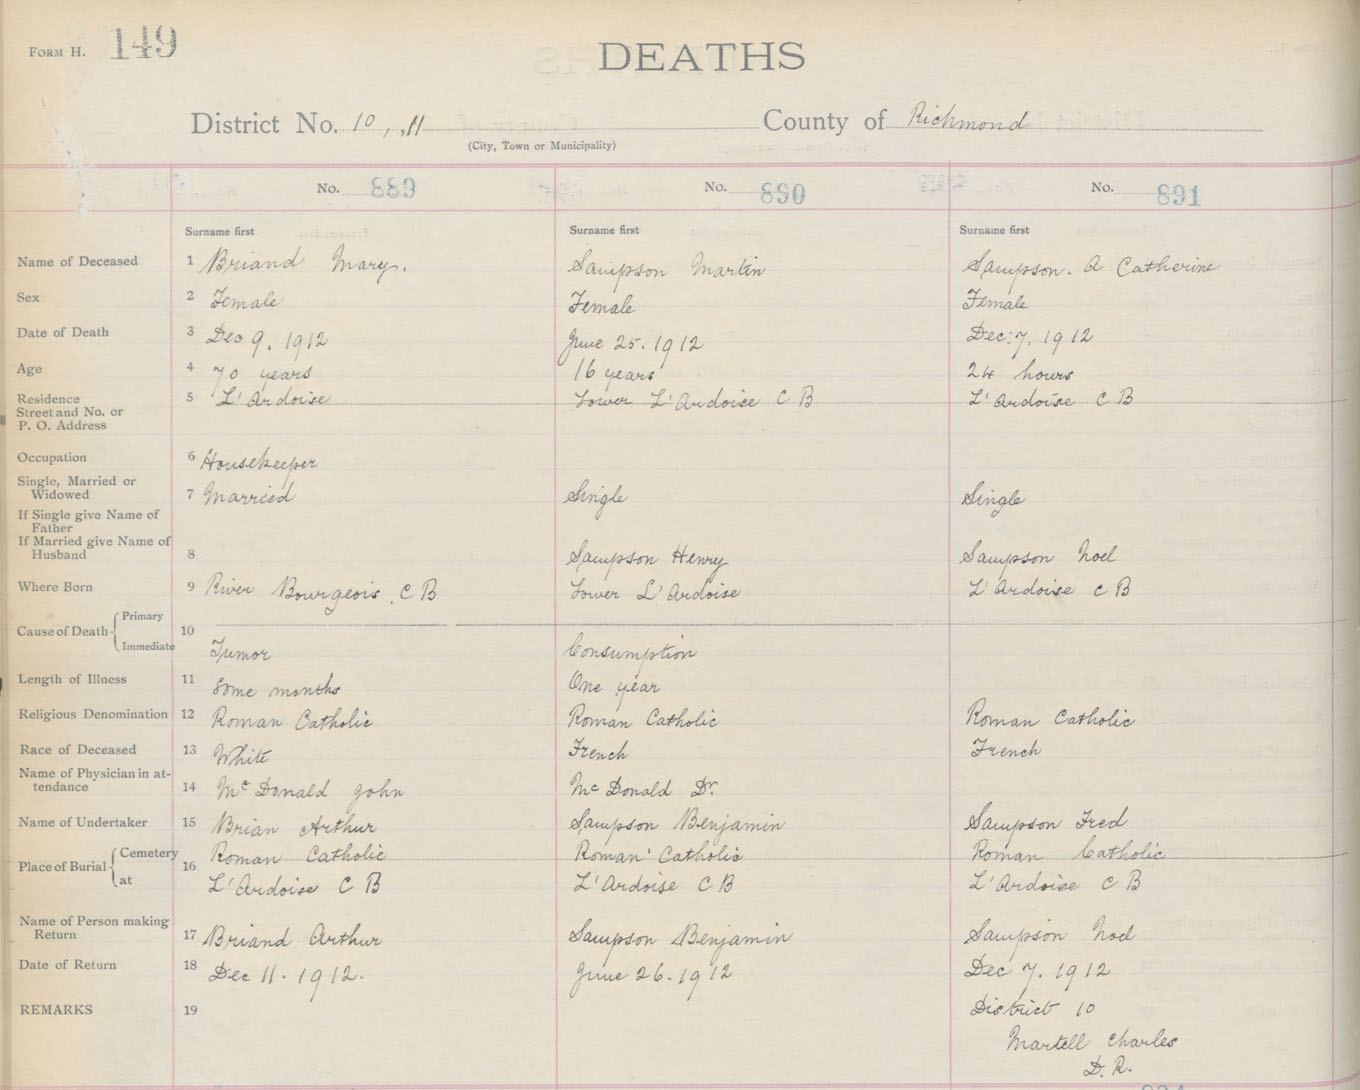 FORM H. 149
DEATHS
District No. 10, ,11 County of Richmond
(City, Town or Municipality)
No. 889 No. 890 No. 891
Surname first Surname first Surname first
Name of Deceased 1 Briand Mary. Sampson Martin Sampson. A Catherine
Sex 2 Female Female Female
Date of Death 3 Dec 9. 1912 June 25. 1912 Dec: 7. 1912
Age 4 70 years 16 years 24 hours
Residence 5 L'Ardoise Lower L'Ardoise C B L'Ardoise C B
Street and No. or
P. O. Address
Occupation 6 Housekeeper
Single, Married or
Widowed 7 Married Single Single
If Single give Name of
Father
If Married give Name of
Husband 8 Sampson Henry Sampson Noel
Where Born 9 River Bourgeois. C B Lower L'Ardoise L'Ardoise C B
Cause of Death Primary 10
Immediate Tumor Consumption
Length of Illness 11 Some months One year
Religious Denomination 12 Roman Catholic Roman Catholic Roman Catholic
Race of Deceased 13 White French French
Name of Physician in at-
tendance 14 Mc Donald John Mc Donald Dr.
Name of Undertaker 15 Brian Arthur Sampson Benjamin Sampson Fred
Place of Burial Cemetery 16 Roman Catholic Roman Catholic Roman Catholic
at L'Ardoise C B L'Ardoise C B L'Ardoise C B
Name of Person making
Return 17 Briand Arthur Sampson Benjamin Sampson Noel
Date of Return 18 Dec 11. 1912. June 26. 1912 Dec 7. 1912
REMARKS 19 District 10
Martell Charles
D. R.